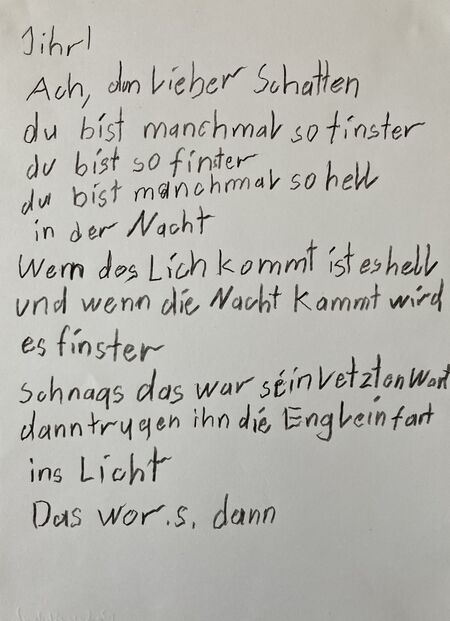 Jihrl
Ach, dun lieber Schatten
du bist manchmal so finster
du bist so finter
du bist manchmal so hell
in der Nacht
Wenn das Lich kommt ist es hell
und wenn die Nacht kammt wird
es finster
Schnaqs das war sein letzten Wort
dann trugen ihn die Englein fort
ins Licht
Das wor.s. dann